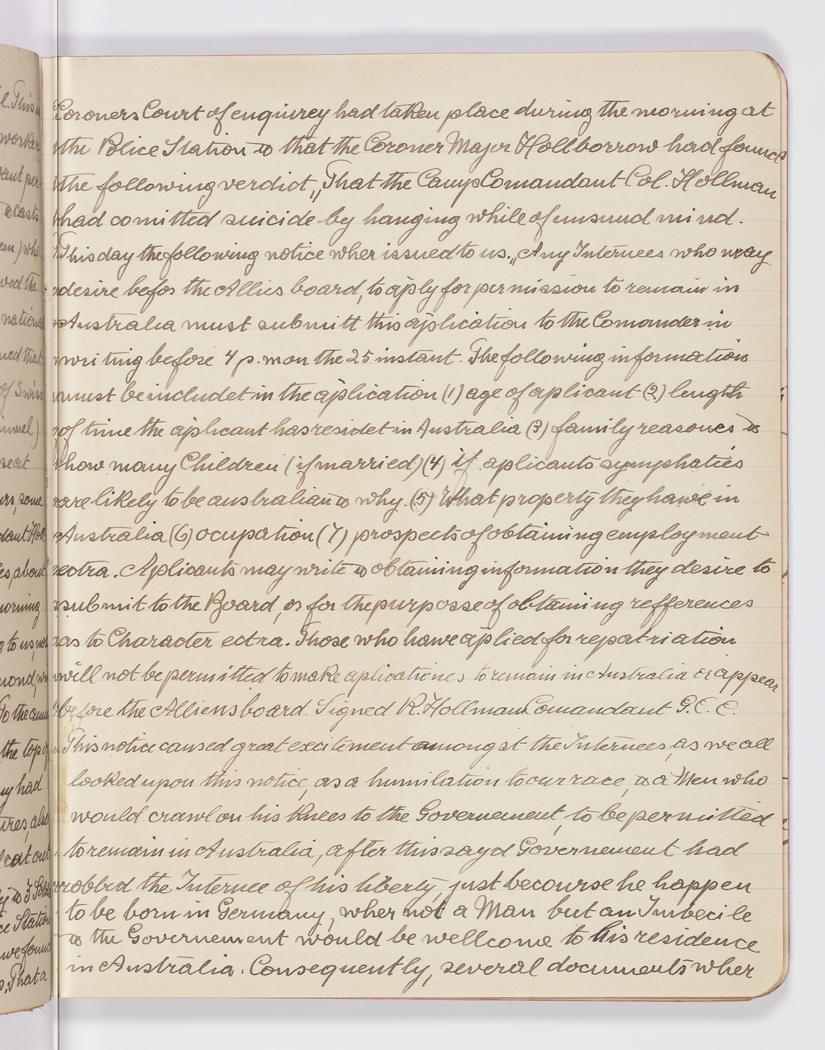 Coroners Court of enquirey had taken place during the morning at
the Police Station & that the Coroner Major Hollborrow had found
the following verdict „That the Camp Comandant Col. Hollman
had comitted suicide by hanging while of unsuud mind.
This day the following notice wher issued to us. „Any Internees who may
desire befor the Allies board, to aply for permission to remain in
Australia must submitt this aplication to the Comander in
writing before 4 p.m on the 25 instant. The following information
must be includet in the aplication (1) age of aplicant (2) length
of time the aplicant has residet in Australia (3) family reasones &
how many Children (if married) (4) if aplicants symphaties
are likely to be australian & why. (5) What property they hawe in
Australia (6) ocupation (7) prospects of obtaining employment
ectra. Aplicants may write & obtaining information they desire to
submit to the Board, or for the purposse of obtaining refferences
as to Character ectra. Those who hawe aplied for repatriation
will not be permitted to make aplicationes to remain in Australia or appear
before the Alliens board. Signed R. Hollman Comandant G.C.C.
This notice caused great excitement amongst the Internees, as we all
looked upon this notice, as a humilation to our race, & a Men who
would crawl on his Knees to the Governement, to be permitted
to remain in Australia, after this sayd Governement had
robbed the Internee of his liberty, just becourse he happen
to be born in Germany, wher not a Man but an Imbecile
& the Governement would be wellcome to his residence
in Australia. Consequently, several documents wher